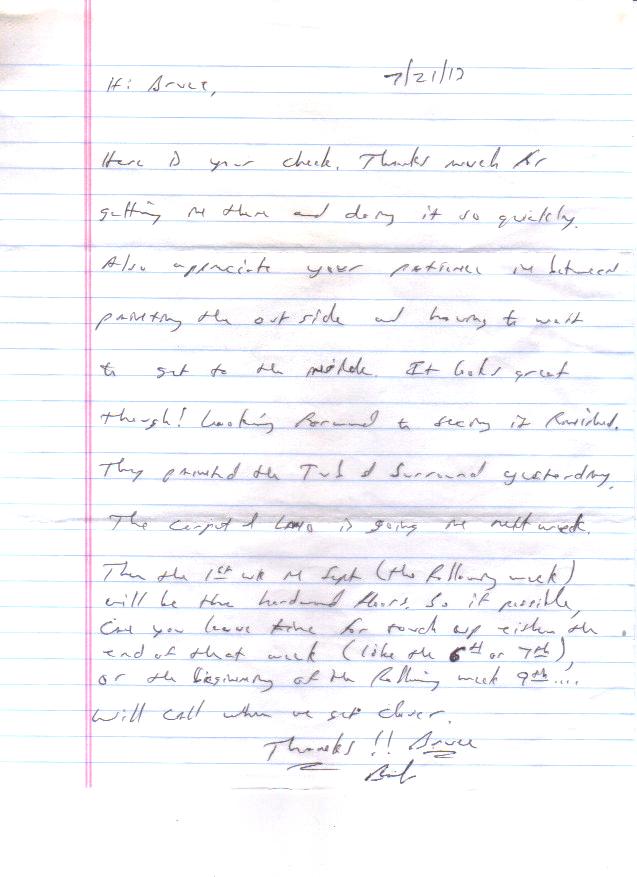 7/21/12
Hi Bruce,
Here is your check. Thanks much for
getting me them and doing it so quickly.
Also appreciate your patience in between
painting the outside and having to wait
to get to the middle. It looks great
though! Looking forward to seeing it finished.
They painted the Tub & Surround yesterday.
The carpet & Lino is going in next week.
Then the 1st wk in Sept (the following week)
will be the hardwood floors. So if possible,
Can you leave time for touch up either the
end of that week (like the 6th or 7th),
or the beginning of the following week 9th....
Will call when we get closer.
Thanks!! Bruce